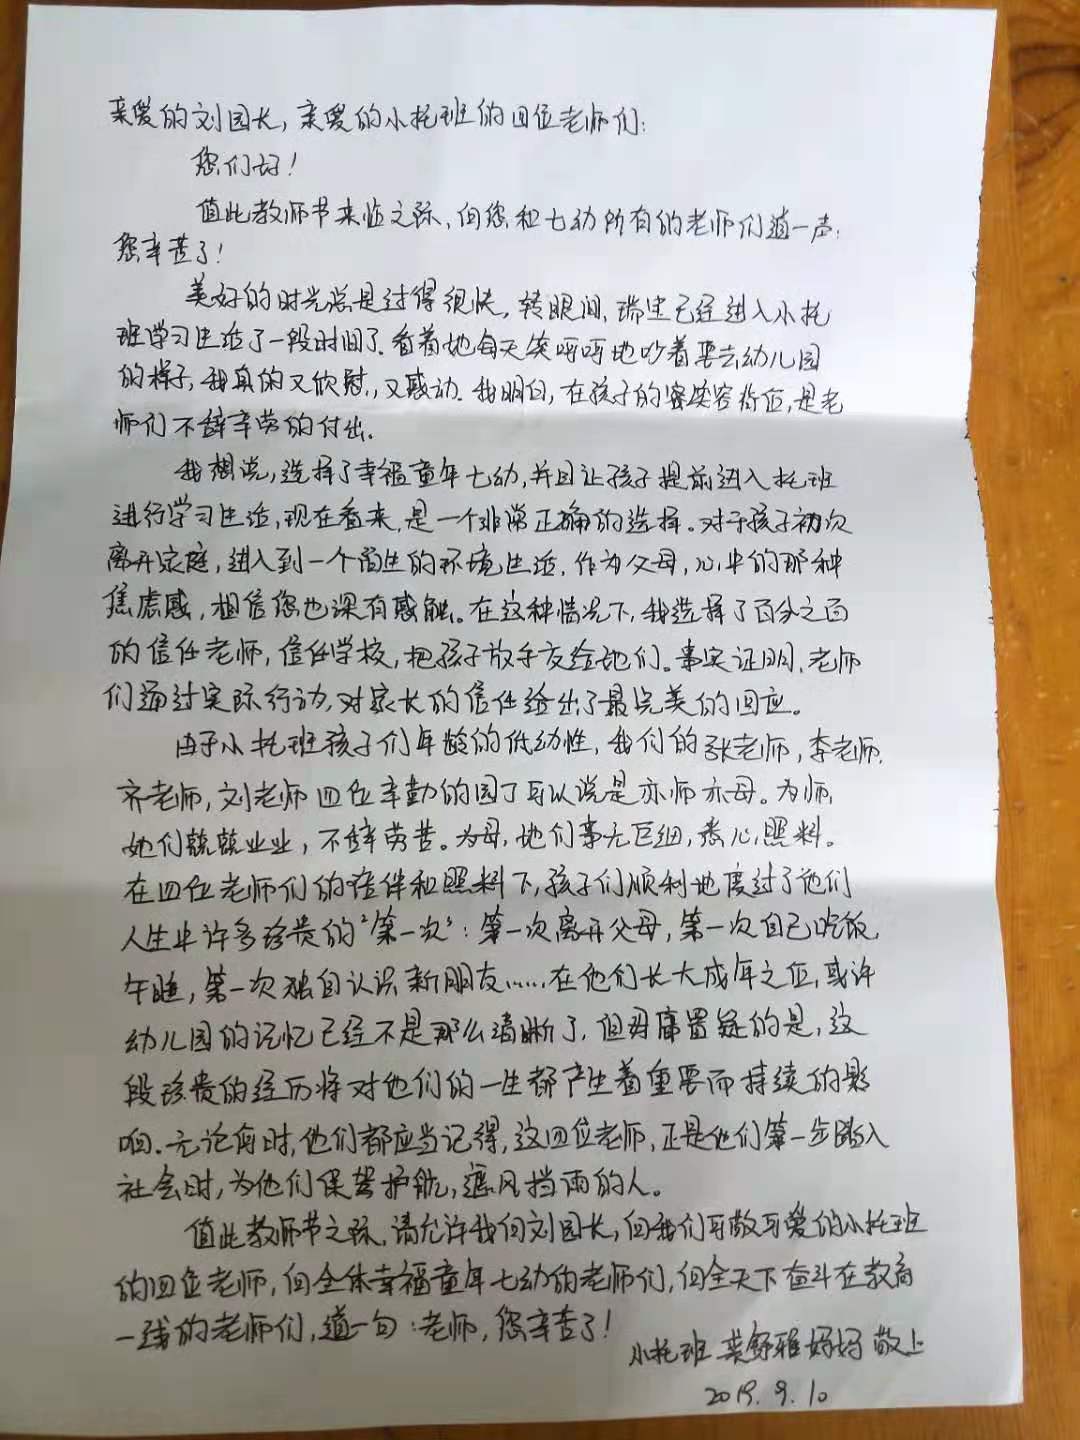 亲爱的刘园长，亲爱的小托班的四位老师们：
您们好！
值此教师节来临之际，向您和七幼所有的老师们道一声：
您辛苦了！
美好的时光总是过得很快，转眼间，已经进入小托
班学习生活了一段时间了。看着她每天笑呵呵地吵着要去幼儿园
的样子，我真的又欣慰，又感动。我明白，在孩子的笑容背后，是老
师们不辞辛劳的付出。
我想说，选择了幸福童年七幼，并且让孩子提前进入托班
进行学习生活，现在看来，是一个非常正确的选择。对于孩子初次
离开家庭，进入到一个陌生的环境生活，作为父母，心中的那种
焦虑感，相信您也深有感触。在这种情况下，我选择了百分之百
的信任老师，信任学校，把孩子放手交给她们。事实证明，老师
们通过实际行动，对家长的信任给出了最完美的回应。
由于小托班孩子们年龄的低幼性，我们的张老师，李老师，
齐老师，刘老师四位辛勤的园丁可以说是亦师亦母。为师，
她们兢兢业业，不辞劳苦。为母，她们事无巨细，悉心照料。
在四位老师们的陪伴和照料下，孩子们顺利地度过了他们
人生中许多珍贵的“第一次”：第一次离开父母，第一次自己吃饭，
午睡，第一次独自认识新朋友……在他们长大成年之后，或许
幼儿园的记忆已经不是那么清晰了，但毋庸置疑的是，这
段珍贵的经历将对他们的一生都产生着重要而持续的影
响。无论何时，他们都应当记得，这四位老师，正是他们第一步踏入
社会时，为他们保驾护航，遮风挡雨的人。
值此教师节之际，请允许我向刘园长，向我们可敬可爱的小托班
的四位老师，向全体幸福童年七幼的老师们，向全天下奋斗在教育
一线的老师们，道一句：老师，您辛苦了！
小托班 舒雅妈妈 敬上
2019.9.10